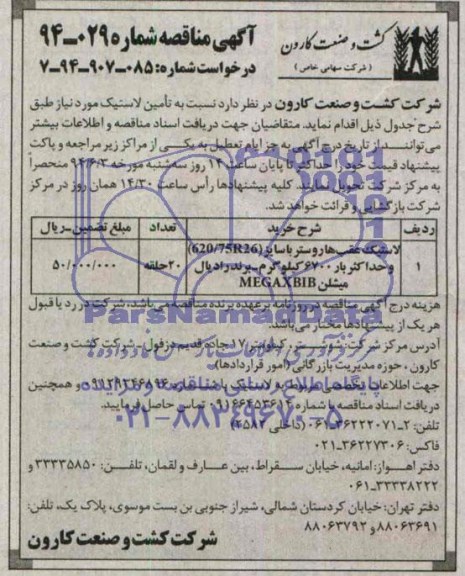 کشت و صنعت کارون
(شرکت سهامی خاص)
آگهی مناقصه شماره ۰۲۹-۹۴
درخواست شماره: ۰۸۵-۹۰۷-۹۴-۷
شرکت کشت و صنعت کارون در نظر دارد نسبت به تأمین لاستیک مورد نیاز طبق
شرح جدول ذیل اقدام نماید. متقاضیان جهت دریافت اسناد مناقصه و اطلاعات بیشتر
می‌توانند از تاریخ درج آگهی به جز ایام تعطیل به یکی از مراکز زیر مراجعه و پاکت
پیشنهاد قیمت خود را حداکثر تا پایان ساعت ۱۴ روز سه‌شنبه مورخه ۹۴/۶/۳ منحصراً
به مرکز شرکت تحویل نمایند. کلیه پیشنهادها رأس ساعت ۱۴/۳۰ همان روز در مرکز
شرکت بازگشایی و قرائت خواهد شد.
ردیف شرح خرید تعداد مبلغ تضمین-ریال
۱ لاستیک عقب هاروستر با سایز (620/75R26) و حداکثر بار ۶۷۰۰ کیلوگرم-برند رادیال میشلن MEGAXBIB ۲۰حلقه ۵۰/۰۰۰/۰۰۰
هزینه درج آگهی مناقصه در روزنامه بر عهده برنده مناقصه می‌باشد، شرکت در رد یا قبول
هر یک از پیشنهادها مختار می‌باشد.
آدرس مرکز شرکت: شوشتر، کیلومتر ۱۷ جاده قدیم دزفول - شرکت کشت و صنعت
کارون، حوزه مدیریت بازرگانی (امور قراردادها).
جهت اطلاعات مربوط به لاستیک با شماره و همچنین
دریافت اسناد مناقصه با شماره ۰۹۱۶۶۴۵۳۶۱۴ تماس حاصل فرمایید.
تلفن: ۲-۳۶۲۲۲۰۷۱-۰۶۱ (داخلی ۴۵۸۲)
فاکس: ۳۶۲۲۷۳۰۶-۰۲۱
دفتر اهواز: امانیه، خیابان سقراط، بین عارف و لقمان، تلفن: ۳۳۳۳۵۸۵۰ و
۳۳۳۳۸۲۲۲-۰۶۱
دفتر تهران: خیابان کردستان شمالی، شیراز جنوبی بن بست موسوی، پلاک یک، تلفن:
۸۸۰۶۳۶۹۱ و ۸۸۰۶۳۷۹۲
شرکت کشت و صنعت کارون
ParsNamadData
پایگاه اطلاع رسانی مناقصه و مزایده
۰۲۱-۸۸۳۴۹۶۷۰-۵